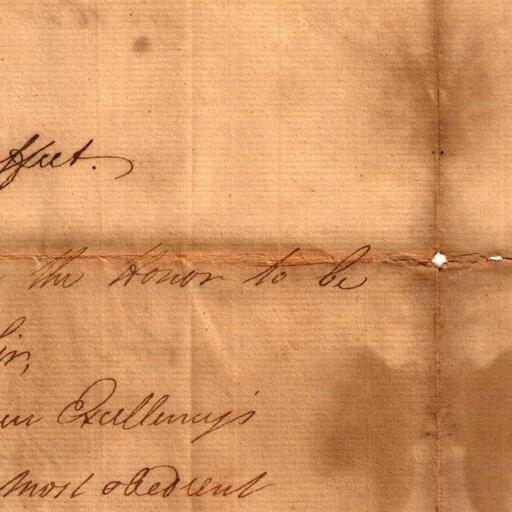 effect.
the Honor to be
Sir,
Excellency's
most obedient